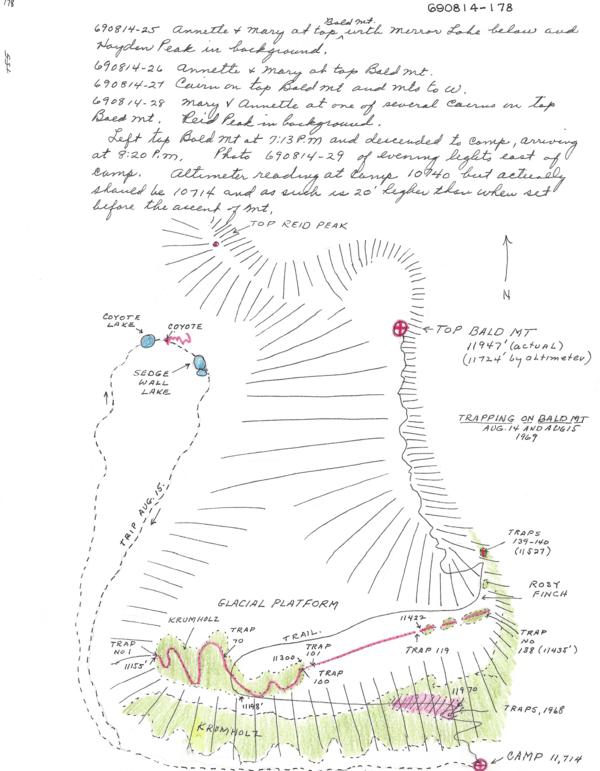 178
690814-178
690814-25 Annette & Mary at top Bald Mt. with Mirror Lake below and
Hayden Peak in background.
690814-26 Annette & Mary at top Bald Mt.
690814-27 Cairn on top Bald Mt and mts to W.
690814-28 Mary & Annette at one of several Cairns on top
Bald Mt. Reid Peak in background.
Left top Bald Mt at 7:13 P.M and descended to camp, arriving
at 8:20 P.m. Photo 690814-29 of evening lights east of
camp. Altimeter reading at camp 10740 but actually
should be 10714 and as such is 20' higher than when set
before the ascent of Mt.
TOP REID PEAK
N
COYOTE
LAKE
COYOTE
SEDGE
WALL
LAKE
TOP BALD MT
11947' (actual)
(11724' by altimeter)
TRAPPING ON BALD MT
AUG. 14 AND AUG 15
1969
TRIP AUG. 15.
TRAPS
139-140
(11527)
ROSY
FINCH
GLACIAL PLATFORM
KRUMHOLZ
TRAP
70
TRAIL.
11422
TRAP
NO 1
11155'
11300
TRAP
101
TRAP 119
TRAP
NO
138 (11435')
TRAP
100
11198'
11970
TRAPS, 1968
KRUMHOLZ
CAMP 11,714